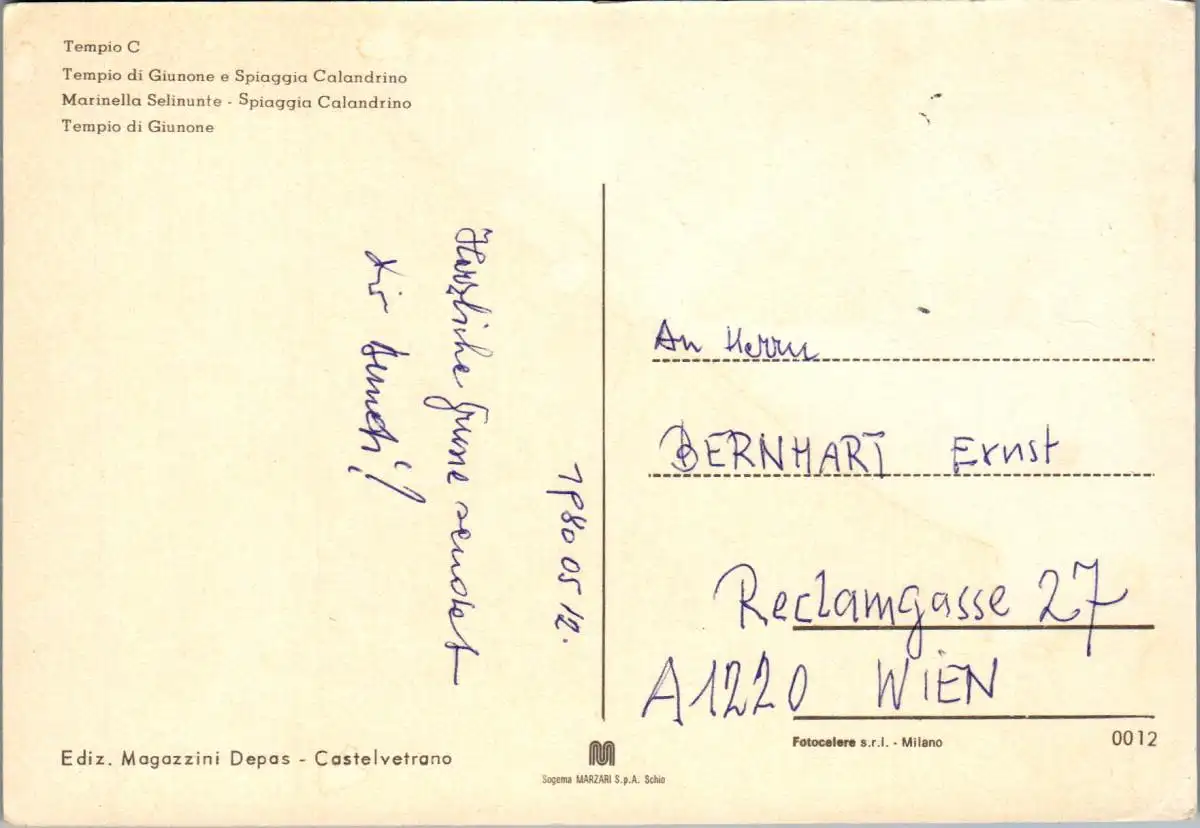 Tempio C
Tempio di Giunone e Spiaggia Calandrino
Marinella Selinunte - Spiaggia Calandrino
Tempio di Giunone
1980 05 12.
Herzliche Grüsse sendet
Dir
An Herrn
BERNHART Ernst
Reclamgasse 27
A1220 WIEN
Ediz. Magazzini Depas - Castelvetrano
Sogema MARZARI S.p.A. Schio
Fotocelere s.r.l. - Milano
0012